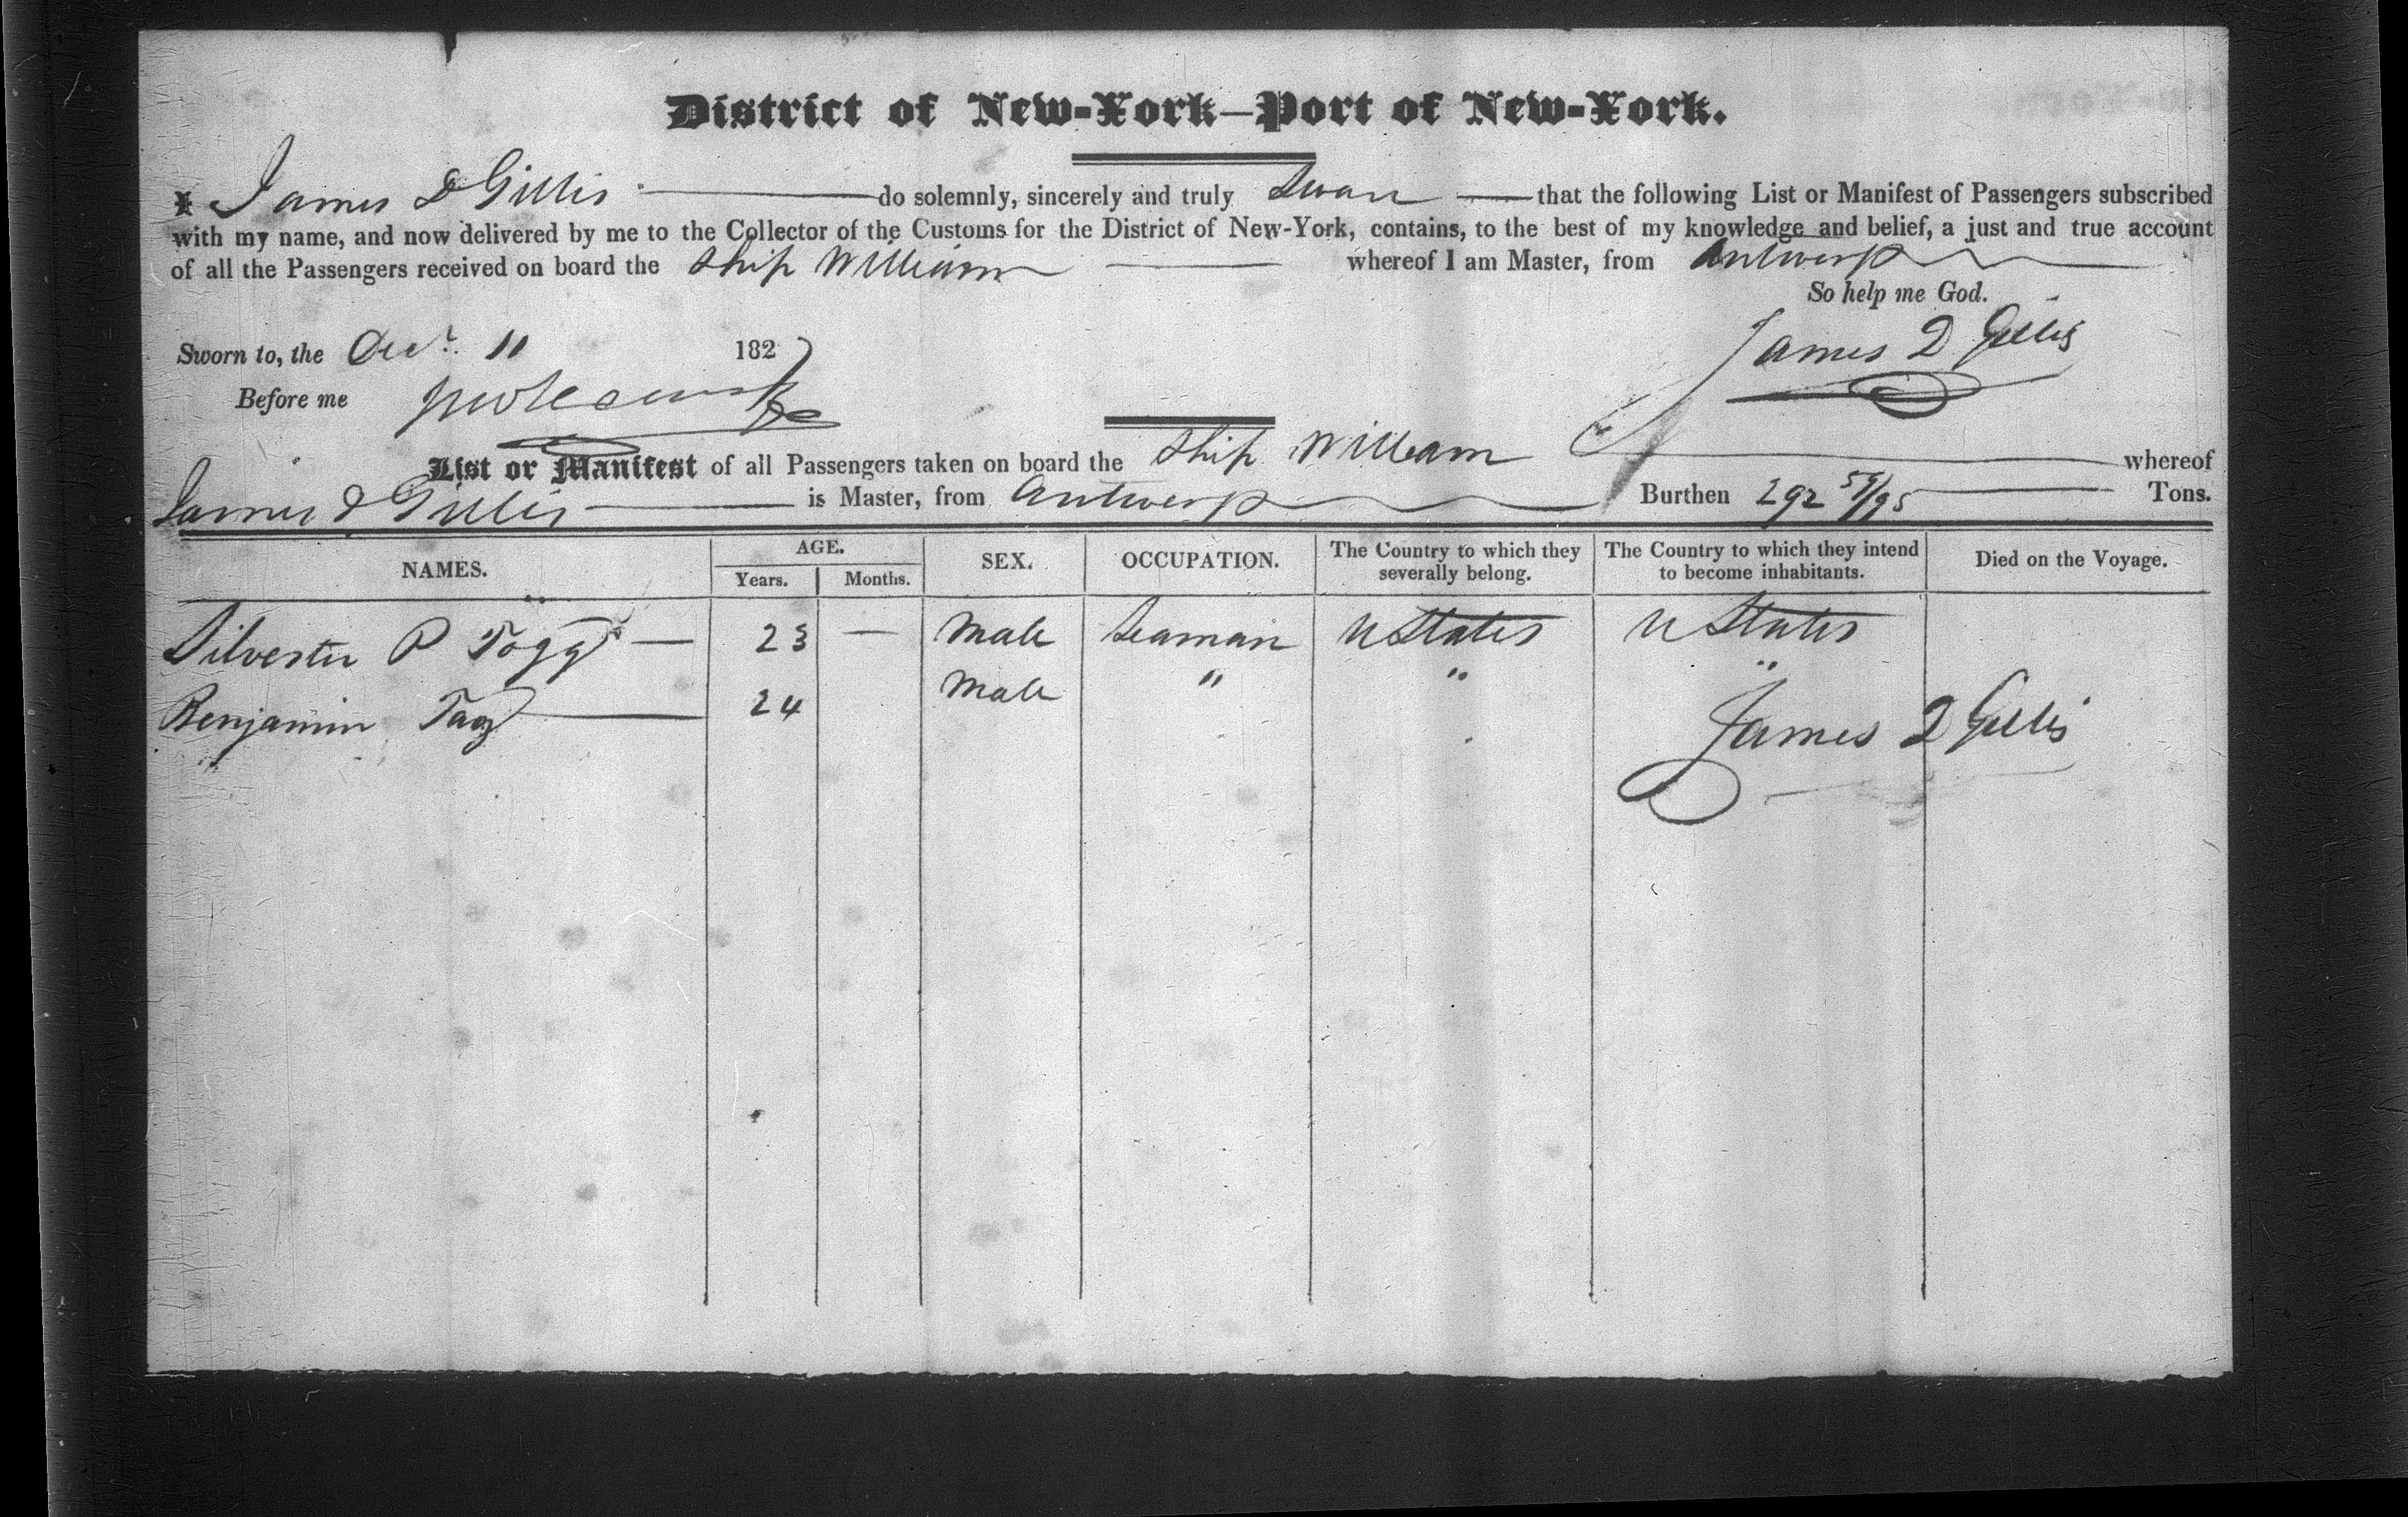 District of New-York—Port of New-York.
I James D Gillis do solemnly, sincerely and truly Swear that the following List or Manifest of Passengers subscribed
with my name, and now delivered by me to the Collector of the Customs for the District of New-York, contains, to the best of my knowledge and belief, a just and true account
of all the Passengers received on board the Ship William whereof I am Master, from Antwerp
So help me God.
James D Gillis
Sworn to, the 11 182
Before me
List or Manifest of all Passengers taken on board the Ship William whereof
James D Gillis is Master, from Antwerp Burthen 292 59/95 Tons.
NAMES. AGE. SEX. OCCUPATION. The Country to which they severally belong. The Country to which they intend to become inhabitants. Died on the Voyage.
Years. Months.
Silvester P Fogg — 23 — Male Seaman U States U States
Benjamin 24 Male " " "
James D Gillis